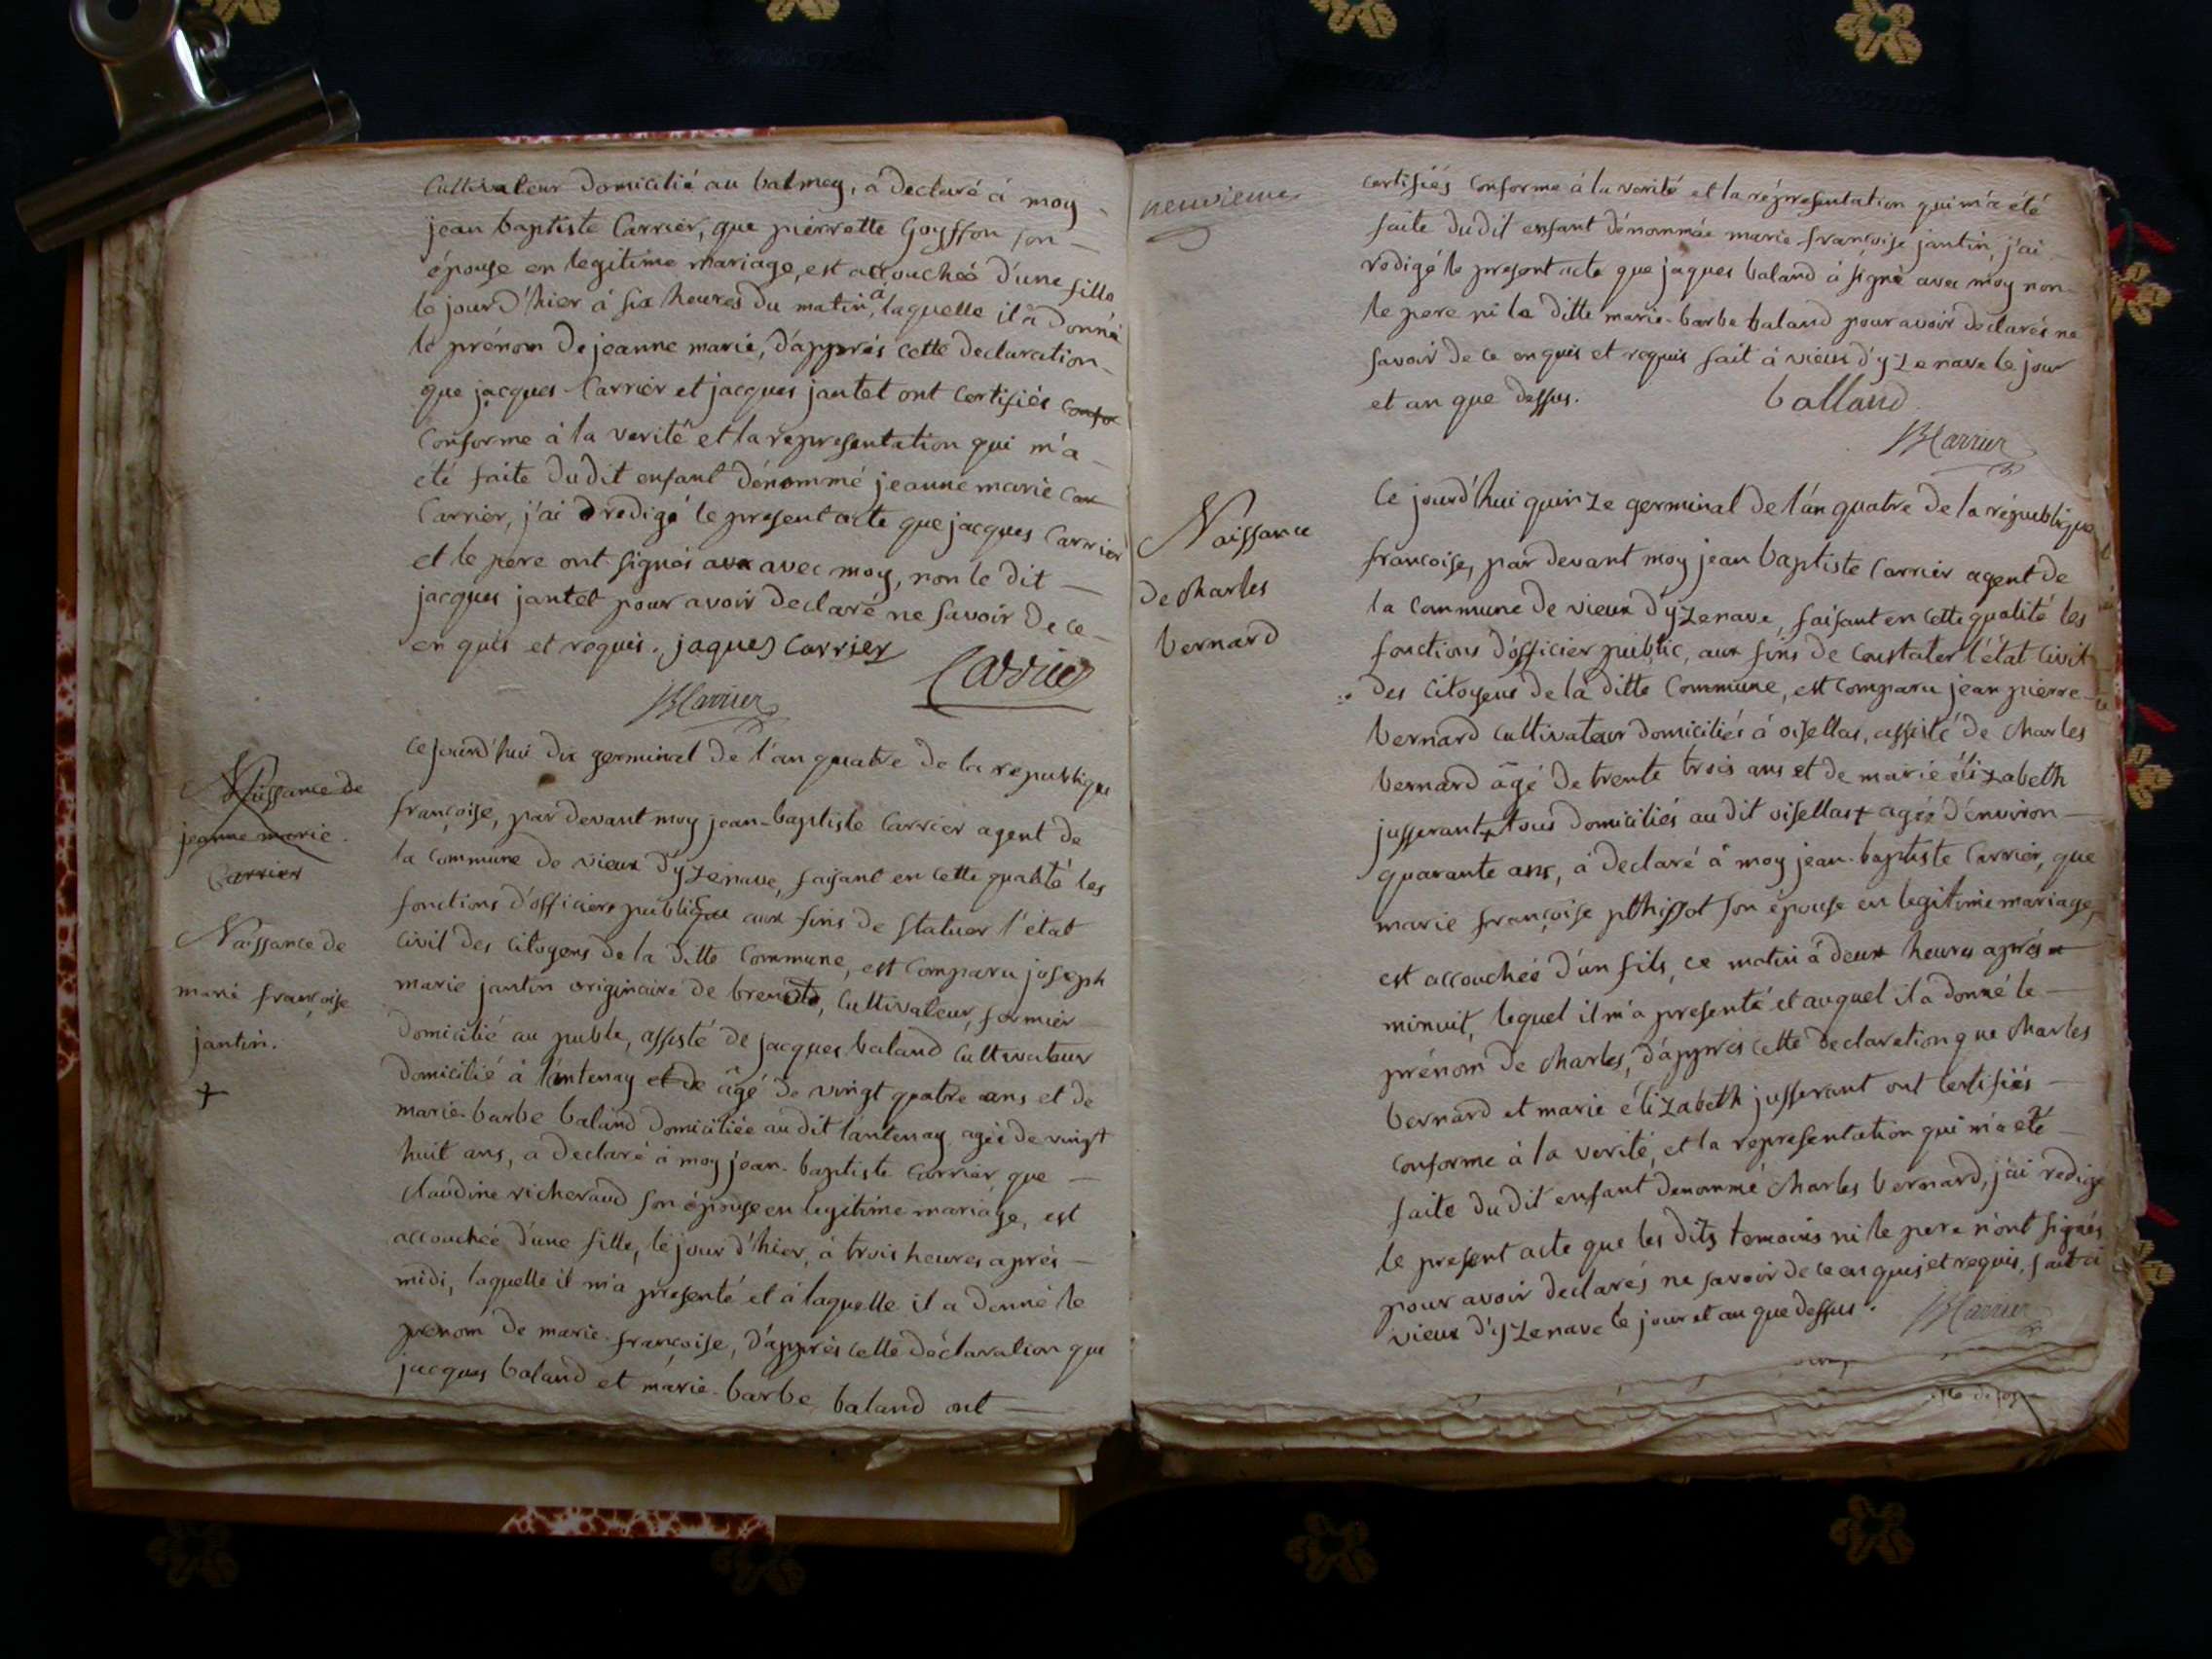 cultivateur domicilié au balmey, à declaré à moy
jean baptiste Carrier, que pierrette Goyffon son
épouse en legitime mariage, est accouchéé d'une fille
le jourd'hier à six heures du matin, à laquelle il à donné
le prénom de jeanne marie, d'apprés cette declaration
que jacques Carrier et jacques jantet ont certifiés confor
conforme à la verité et la representation qui m'a
été faite dudit enfant dénommé jeanne marie Car
Carrier, j'ai redigé le present acte que jacques Carrier
et le pere ont signés avec moy, non le dit
jacques jantet pour avoir declaré ne savoir de ce
enquis et requis. jaques Carrier
Carrier
JBCarrier
Naissance de
jeanne marie
Carrier
ce jourd'hui dix germinal de l'an quatre de la republique
françoise, par devant moy jean-baptiste Carrier agent de
la commune de vieux d'yzenave, faisant en cette qualité les
fonctions d'officier public aux fins de statuer l'état
civil des citoyens de la ditte commune, est comparu joseph
Naissance de
marie françoise
jantin.
+
marie jantin originaire de brenod, cultivateur, fermier
domicilié au puble, assisté de jacques baland cultivateur
domicilié à lantenay et de âgé de vingt quatre ans et de
marie-barbe baland domiciliée audit lantenay agée de vingt
huit ans, a declaré à moy jean-baptiste Carrier que
claudine richeraud son épouse en legitime mariage, est
accouchéé d'une fille, le jour d'hier, à trois heures après
midi, laquelle il m'a presenté et à laquelle il a donné le
prenom de marie-françoise, d'apprès cette déclaration que
jacques baland et marie-barbe baland ont
neuvieme
certifiés conforme à la verité et la représentation qui m'a été
faite dudit enfant dénommée marie françoise jantin, j'ai
redigé le present acte que jaques baland à signé avec moy non
le pere ni la ditte marie-barbe baland pour avoir declarés ne
savoir de ce enquis et requis fait à vieux d'yzenave le jour
et an que dessus. balland
JBCarrier
Naissance
de charles
bernard
Ce jourd'hui quinze germinal de l'an quatre de la république
francoise, par devant moy jean baptiste Carrier agent de
la commune de vieux d'yzenave, faisant en cette qualité les
fonctions d'officier public, aux fins de constater l'état civil
des citoyens de la ditte commune, est comparu jean pierre
bernard cultivateur domiciliés à oisellas, assisté de charles
bernard âgé de trente trois ans et de marie élizabeth
jusserant + tous domiciliés audit oisellas + agéé d'environ
quarante ans, à declaré à moy jean-baptiste Carrier, que
marie françoise son épouse en legitime mariage,
est accouchéé d'un fils, ce matin à deux heures aprés
minuit, lequel il m'a presenté et auquel il a donné le
prénom de charles, d'apprés cette declaration que charles
bernard et marie élizabeth jusserant ont certifiés
conforme à la verité, et la representation qui m'a été
faite dudit enfant denommé charles bernard, j'ai redigé
le present acte que les dits temoins ni le pere n'ont signés
pour avoir declarés ne savoir de ce enquis et requis, fait à
vieux d'yzenave le jour et an que dessus. JBCarrier